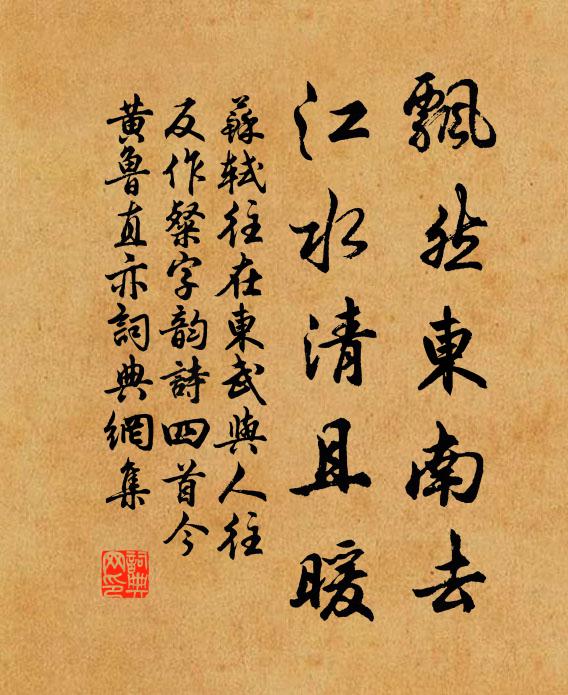 飄然東南去
江水清且暖
蘇軾往在東武與人往
反作粲字韵詩四首今
黃魯直亦詞典網集
詞典
网印